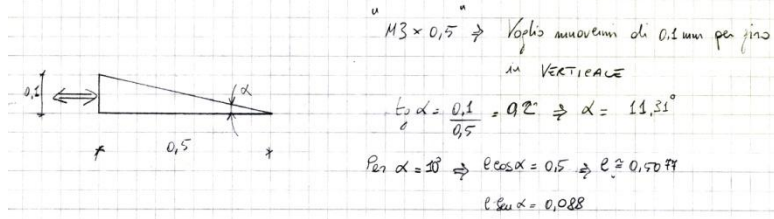 "M3 × 0,5" ⇒ Voglio muovermi di 0,1 mm per giro
in VERTICALE
0,1
α
0,5
tg α = 0,1 / 0,5 = 0,2 ⇒ α = 11,31°
Per α = 10° ⇒ l cos α = 0,5 ⇒ l ≅ 0,5077
l sen α = 0,088